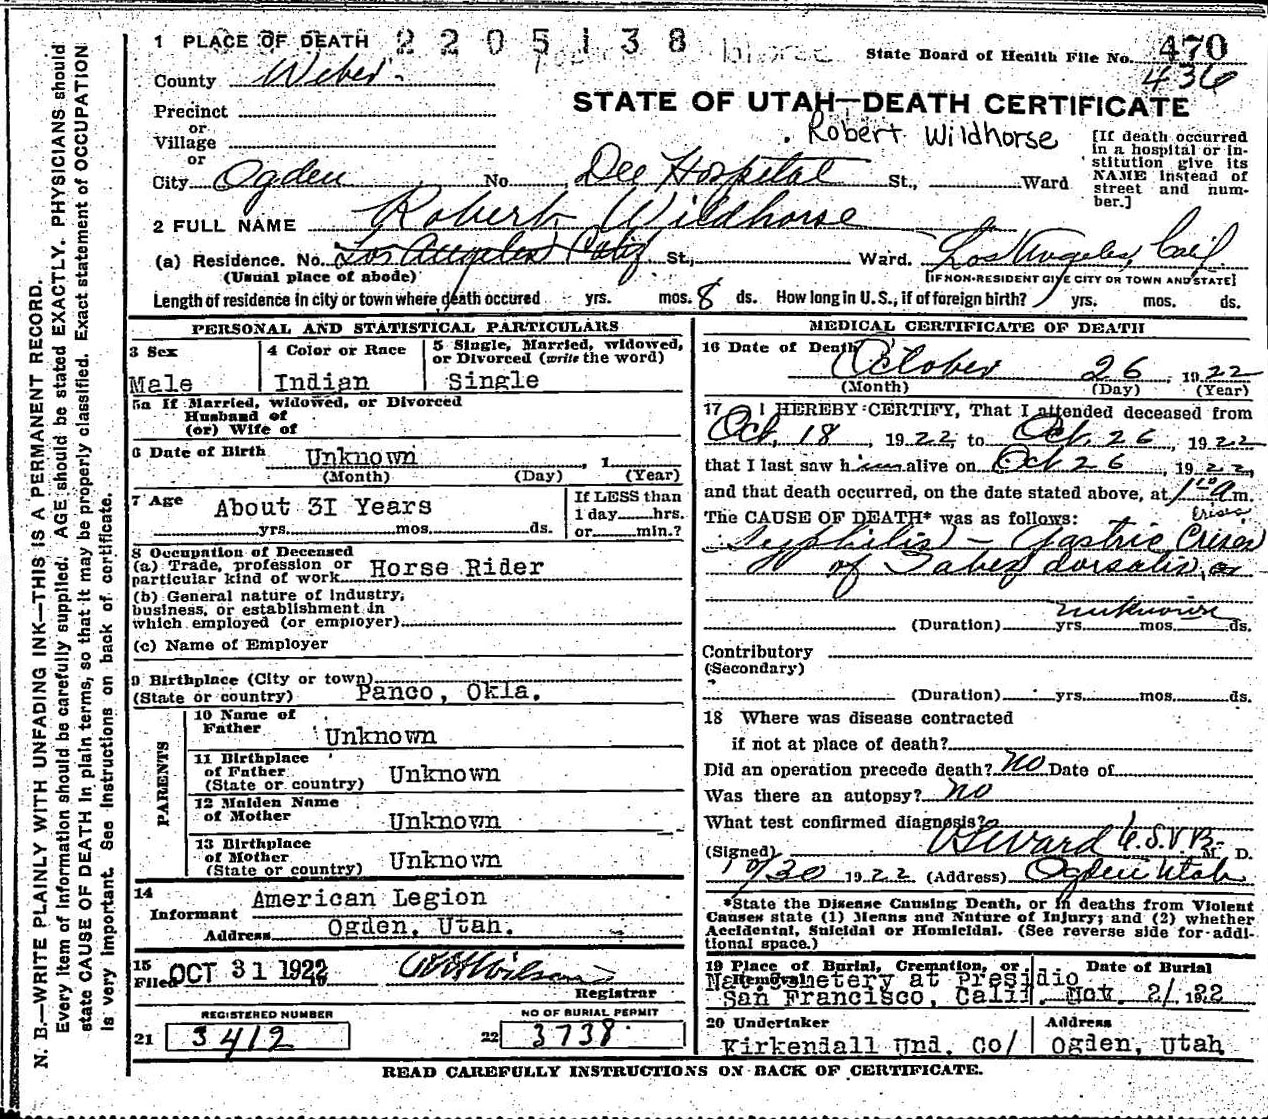 1 PLACE OF DEATH 2205138
State Board of Health File No. 470
436
County Weber
Precinct
or
Village
or
City Ogden No. Dee Hospital St., Ward
STATE OF UTAH—DEATH CERTIFICATE
Robert Wildhorse
[If death occurred in a hospital or institution give its NAME instead of street and number.]
2 FULL NAME Robert Wildhorse
(a) Residence. No. Los Angeles Calif St., Ward. Los Angeles, Calif.
(Usual place of abode) [IF NON-RESIDENT GIVE CITY OR TOWN AND STATE]
Length of residence in city or town where death occured yrs. mos. 8 ds. How long in U.S., if of foreign birth? yrs. mos. ds.
PERSONAL AND STATISTICAL PARTICULARS
3 Sex
Male
4 Color or Race
Indian
5 Single, Married, widowed, or Divorced (write the word)
Single
5a If Married, widowed, or Divorced
Husband of
(or) Wife of
6 Date of Birth Unknown , 1
(Month) (Day) (Year)
7 Age About 31 Years
yrs. mos. ds.
If LESS than
1 day hrs.
or min.?
8 Occupation of Deceased
(a) Trade, profession or
particular kind of work Horse Rider
(b) General nature of Industry,
business, or establishment in
which employed (or employer)
(c) Name of Employer
9 Birthplace (City or town)
(State or country) Panco, Okla.
PARENTS
10 Name of
Father Unknown
11 Birthplace
of Father
(State or country) Unknown
12 Maiden Name
of Mother Unknown
13 Birthplace
of Mother
(State or country) Unknown
14
Informant American Legion
Address Ogden, Utah.
15
Filed OCT 31 1922 Wilson
Registrar
REGISTERED NUMBER
21 3412
NO OF BURIAL PERMIT
22 3738
MEDICAL CERTIFICATE OF DEATH
16 Date of Death October 26, 1922
(Month) (Day) (Year)
17 I HEREBY CERTIFY, That I attended deceased from
Oct. 18, 1922 to Oct. 26, 1922
that I last saw him alive on Oct 26, 1922,
and that death occurred, on the date stated above, at 1 10 a m.
The CAUSE OF DEATH* was as follows: Crises
Syphilis) — Gastric Crises
of Tabes dorsalis,
unknown
(Duration) yrs. mos. ds.
Contributory
(Secondary)
(Duration) yrs. mos. ds.
18 Where was disease contracted
if not at place of death?
Did an operation precede death? no Date of
Was there an autopsy? no
What test confirmed diagnosis?
(Signed) U.S.V.B. M. D.
10/30 1922 (Address) Ogden Utah
*State the Disease Causing Death, or in deaths from Violent
Causes state (1) Means and Nature of Injury; and (2) whether
Accidental, Suicidal or Homicidal. (See reverse side for additional space.)
19 Place of Burial, Cremation, or Removal
Nat Cemetery at Presidio
San Francisco, Calif.
Date of Burial
Nov. 2/ 1922
20 Undertaker
Kirkendall Und. Co/
Address
Ogden, Utah
READ CAREFULLY INSTRUCTIONS ON BACK OF CERTIFICATE.
N. B.—WRITE PLAINLY WITH UNFADING INK—THIS IS A PERMANENT RECORD.
Every item of information should be carefully supplied. AGE should be stated EXACTLY. PHYSICIANS should
state CAUSE OF DEATH in plain terms, so that it may be properly classified. Exact statement of OCCUPATION
is very important. See instructions on back of certificate.